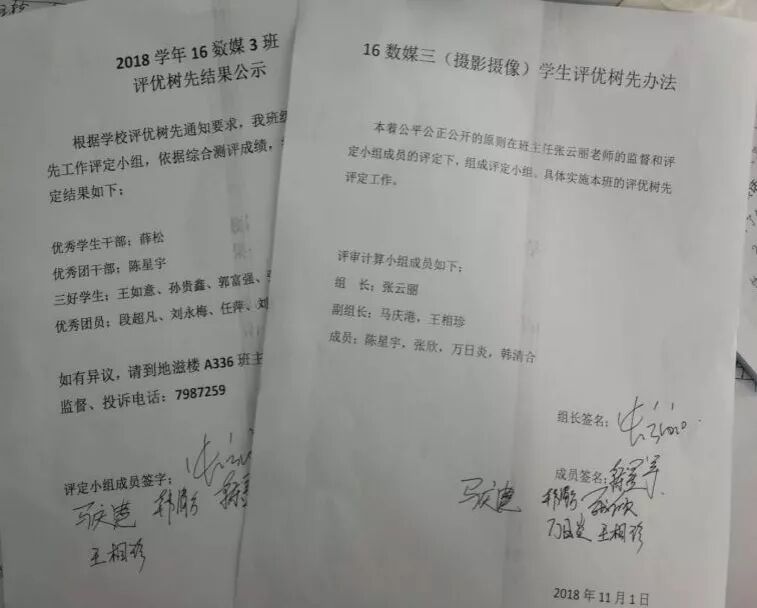 2018 学年 16 数媒 3 班
评优树先结果公示
根据学校评优树先通知要求，我班级
先工作评定小组，依据综合测评成绩，
定结果如下；
优秀学生干部；薛松
优秀团干部；陈星宇
三好学生；王如意、孙贵鑫、郭富强、
优秀团员；段超凡、刘永梅、任萍、刘
如有异议，请到地滋楼 A336 班主
监督、投诉电话：7987259
评定小组成员签字；
马庆港
王相珍
16 数媒三（摄影摄像）学生评优树先办法
本着公平公正公开的原则在班主任张云丽老师的监督和评
定小组成员的评定下，组成评定小组、具体实施本班的评优树先
评定工作。
评审计算小组成员如下；
组 长；张云丽
副组长；马庆港，王相珍
成员；陈星宇，张欣，万日炎，韩清合
组长签名；
成员签名；
马庆港 张欣
万日炎 王相珍
2018 年 11 月 1 日